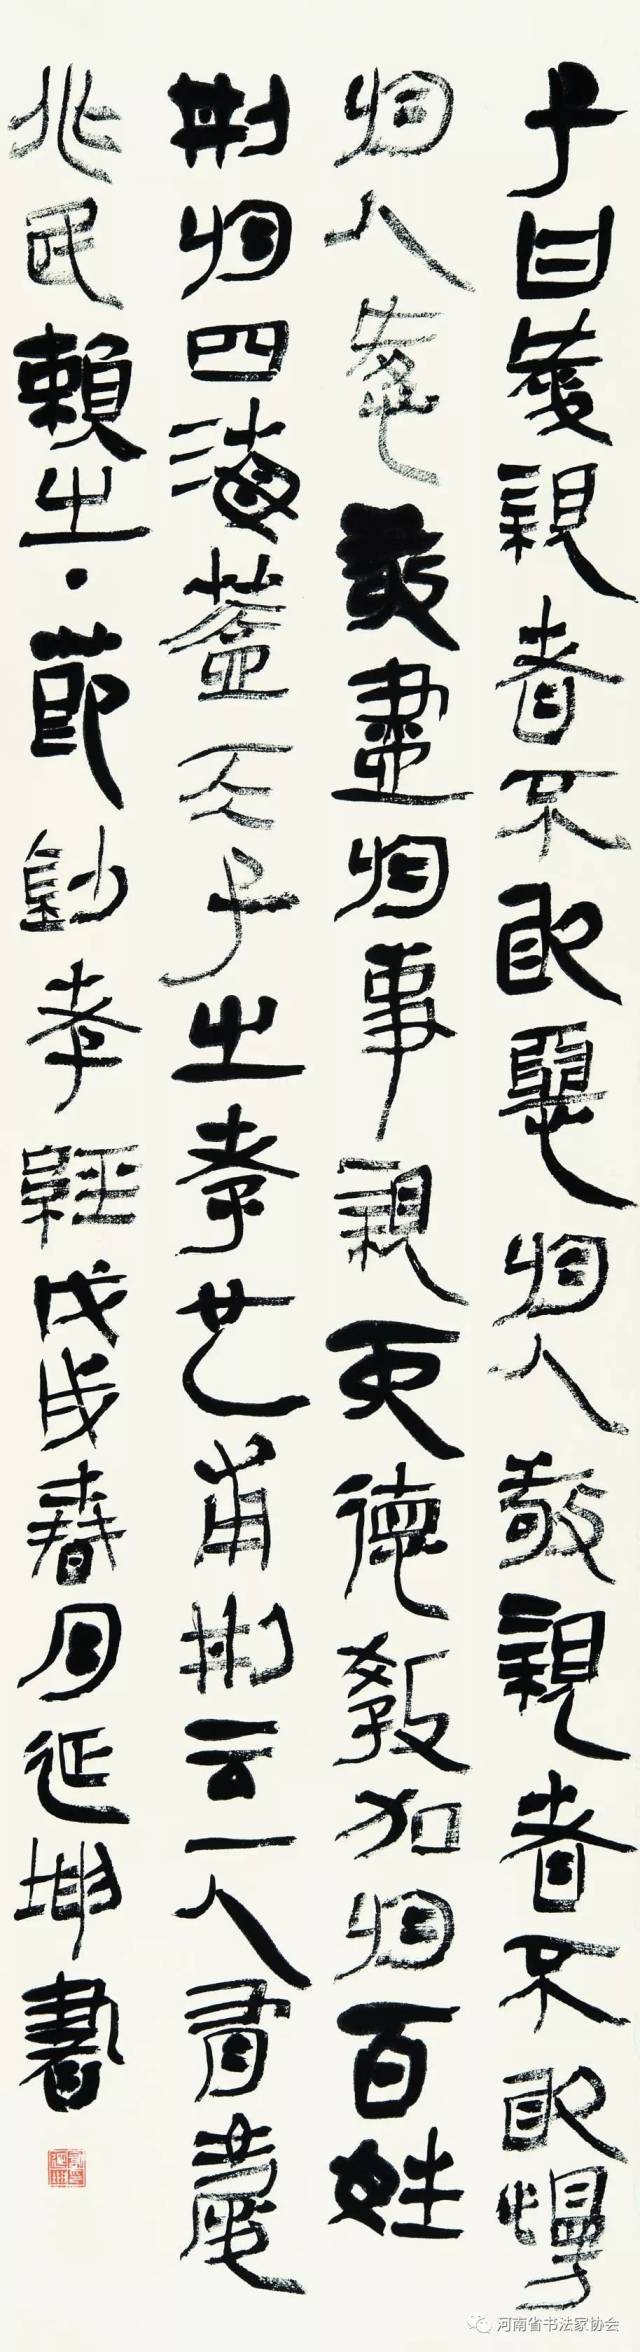 子曰愛親者不敢惡於人敬親者不敢慢
於人愛敬盡於事親而德教加於百姓
刑於四海蓋天子之孝也甫刑云一人有慶
兆民賴之·節鈔孝經戊戌春月延坤書
河南省书法家协会